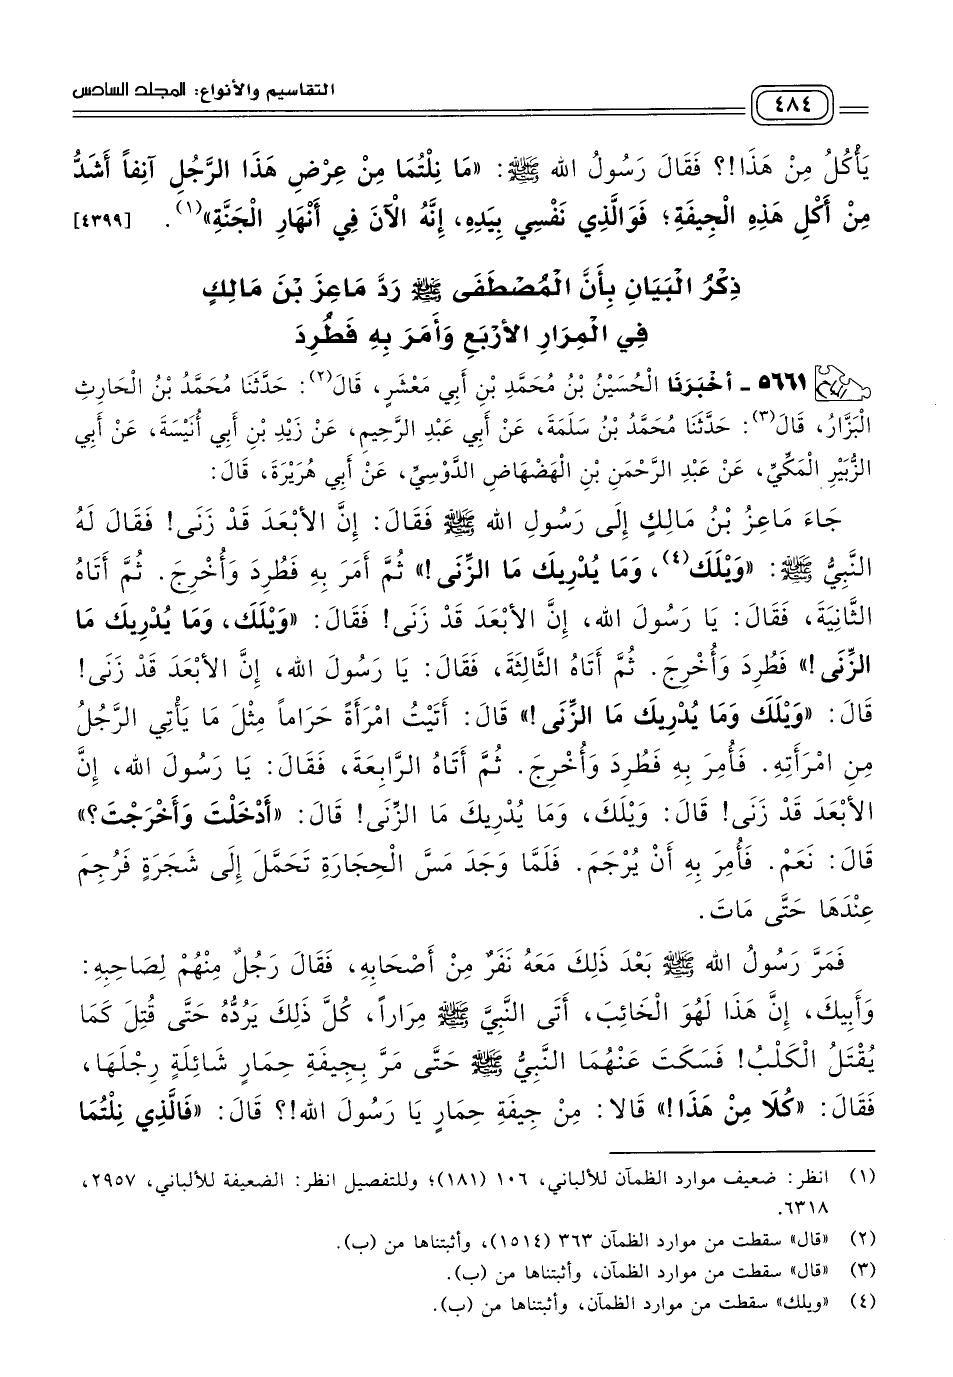 التقاسيم والأنواع: المجلد السادس
٤٨٤
يَأْكُلُ مِنْ هَذَا!؟ فَقَالَ رَسُولُ الله ﷺ: «مَا نِلْتُمَا مِنْ عِرْضِ هَذَا الرَّجُلِ آنِفاً أَشَدُّ
مِنْ أَكْلِ هَذِهِ الْجِيفَةِ؛ فَوَالَّذِي نَفْسِي بِيَدِهِ، إِنَّهُ الْآنَ فِي أَنْهَارِ الْجَنَّةِ»(١). [٤٣٩٩]
ذِكْرُ الْبَيَانِ بِأَنَّ الْمُصْطَفَى ﷺ رَدَّ مَاعِزَ بْنَ مَالِكٍ
فِي الْمِرَارِ الأَرْبَعِ وَأَمَرَ بِهِ فَطُرِدَ
٥٦٦١ - أَخْبَرَنَا الْحُسَيْنُ بْنُ مُحَمَّدِ بْنِ أَبِي مَعْشَرٍ، قَالَ(٢): حَدَّثَنَا مُحَمَّدُ بْنُ الْحَارِثِ
الْبَزَّارُ، قَالَ(٣): حَدَّثَنَا مُحَمَّدُ بْنُ سَلَمَةَ، عَنْ أَبِي عَبْدِ الرَّحِيمِ، عَنْ زَيْدِ بْنِ أَبِي أُنَيْسَةَ، عَنْ أَبِي
الزُّبَيْرِ الْمَكِّيِّ، عَنْ عَبْدِ الرَّحْمَنِ بْنِ الْهَضْهَاضِ الدَّوْسِيِّ، عَنْ أَبِي هُرَيْرَةَ، قَالَ:
جَاءَ مَاعِزُ بْنُ مَالِكٍ إِلَى رَسُولِ الله ﷺ فَقَالَ: إِنَّ الأَبْعَدَ قَدْ زَنَى! فَقَالَ لَهُ
النَّبِيُّ ﷺ: «وَيْلَكَ(٤)، وَمَا يُدْرِيكَ مَا الزِّنَى!» ثُمَّ أَمَرَ بِهِ فَطُرِدَ وَأُخْرِجَ. ثُمَّ أَتَاهُ
الثَّانِيَةَ، فَقَالَ: يَا رَسُولَ الله، إِنَّ الأَبْعَدَ قَدْ زَنَى! فَقَالَ: «وَيْلَكَ، وَمَا يُدْرِيكَ مَا
الزِّنَى!» فَطُرِدَ وَأُخْرِجَ. ثُمَّ أَتَاهُ الثَّالِثَةَ، فَقَالَ: يَا رَسُولَ الله، إِنَّ الأَبْعَدَ قَدْ زَنَى!
قَالَ: «وَيْلَكَ وَمَا يُدْرِيكَ مَا الزِّنَى!» قَالَ: أَتَيْتُ امْرَأَةً حَرَاماً مِثْلَ مَا يَأْتِي الرَّجُلُ
مِنِ امْرَأَتِهِ. فَأُمِرَ بِهِ فَطُرِدَ وَأُخْرِجَ. ثُمَّ أَتَاهُ الرَّابِعَةَ، فَقَالَ: يَا رَسُولَ الله، إِنَّ
الأَبْعَدَ قَدْ زَنَى! قَالَ: وَيْلَكَ، وَمَا يُدْرِيكَ مَا الزِّنَى! قَالَ: «أَدْخَلْتَ وَأَخْرَجْتَ؟»
قَالَ: نَعَمْ. فَأُمِرَ بِهِ أَنْ يُرْجَمَ. فَلَمَّا وَجَدَ مَسَّ الْحِجَارَةِ تَحَمَّلَ إِلَى شَجَرَةٍ فَرُجِمَ
عِنْدَهَا حَتَّى مَاتَ.
فَمَرَّ رَسُولُ الله ﷺ بَعْدَ ذَلِكَ مَعَهُ نَفَرٌ مِنْ أَصْحَابِهِ، فَقَالَ رَجُلٌ مِنْهُمْ لِصَاحِبِهِ:
وَأَبِيكَ، إِنَّ هَذَا لَهُوَ الْخَائِبَ، أَتَى النَّبِيَّ ﷺ مِرَاراً، كُلَّ ذَلِكَ يَرُدُّهُ حَتَّى قُتِلَ كَمَا
يُقْتَلُ الْكَلْبُ! فَسَكَتَ عَنْهُمَا النَّبِيُّ ﷺ حَتَّى مَرَّ بِجِيفَةِ حِمَارٍ شَائِلَةٍ رِجْلَهَا،
فَقَالَ: «كُلَا مِنْ هَذَا!» قَالا: مِنْ جِيفَةِ حِمَارٍ يَا رَسُولَ الله!؟ قَالَ: «فَالَّذِي نِلْتُمَا
(١) انظر: ضعيف موارد الظمآن للألباني، ١٠٦ (١٨١)؛ وللتفصيل انظر: الضعيفة للألباني، ٢٩٥٧،
٦٣١٨.
(٢) «قال» سقطت من موارد الظمآن ٣٦٣ (١٥١٤)، وأثبتناها من (ب).
(٣) «قال» سقطت من موارد الظمآن، وأثبتناها من (ب).
(٤) «ويلك» سقطت من موارد الظمآن، وأثبتناها من (ب).